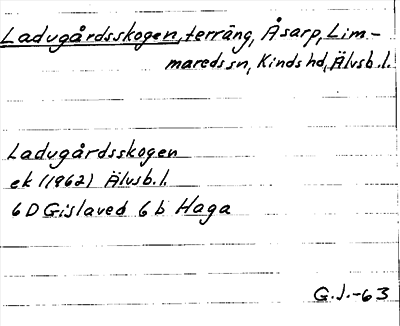 Ladugårdsskogen, terräng, Åsarp, Lim-
mareds sn, Kinds hd, Älvsb.l.
Ladugårdsskogen
ek (1962) Älvsb.l.
6D Gislaved 6b Haga
G.J.-63